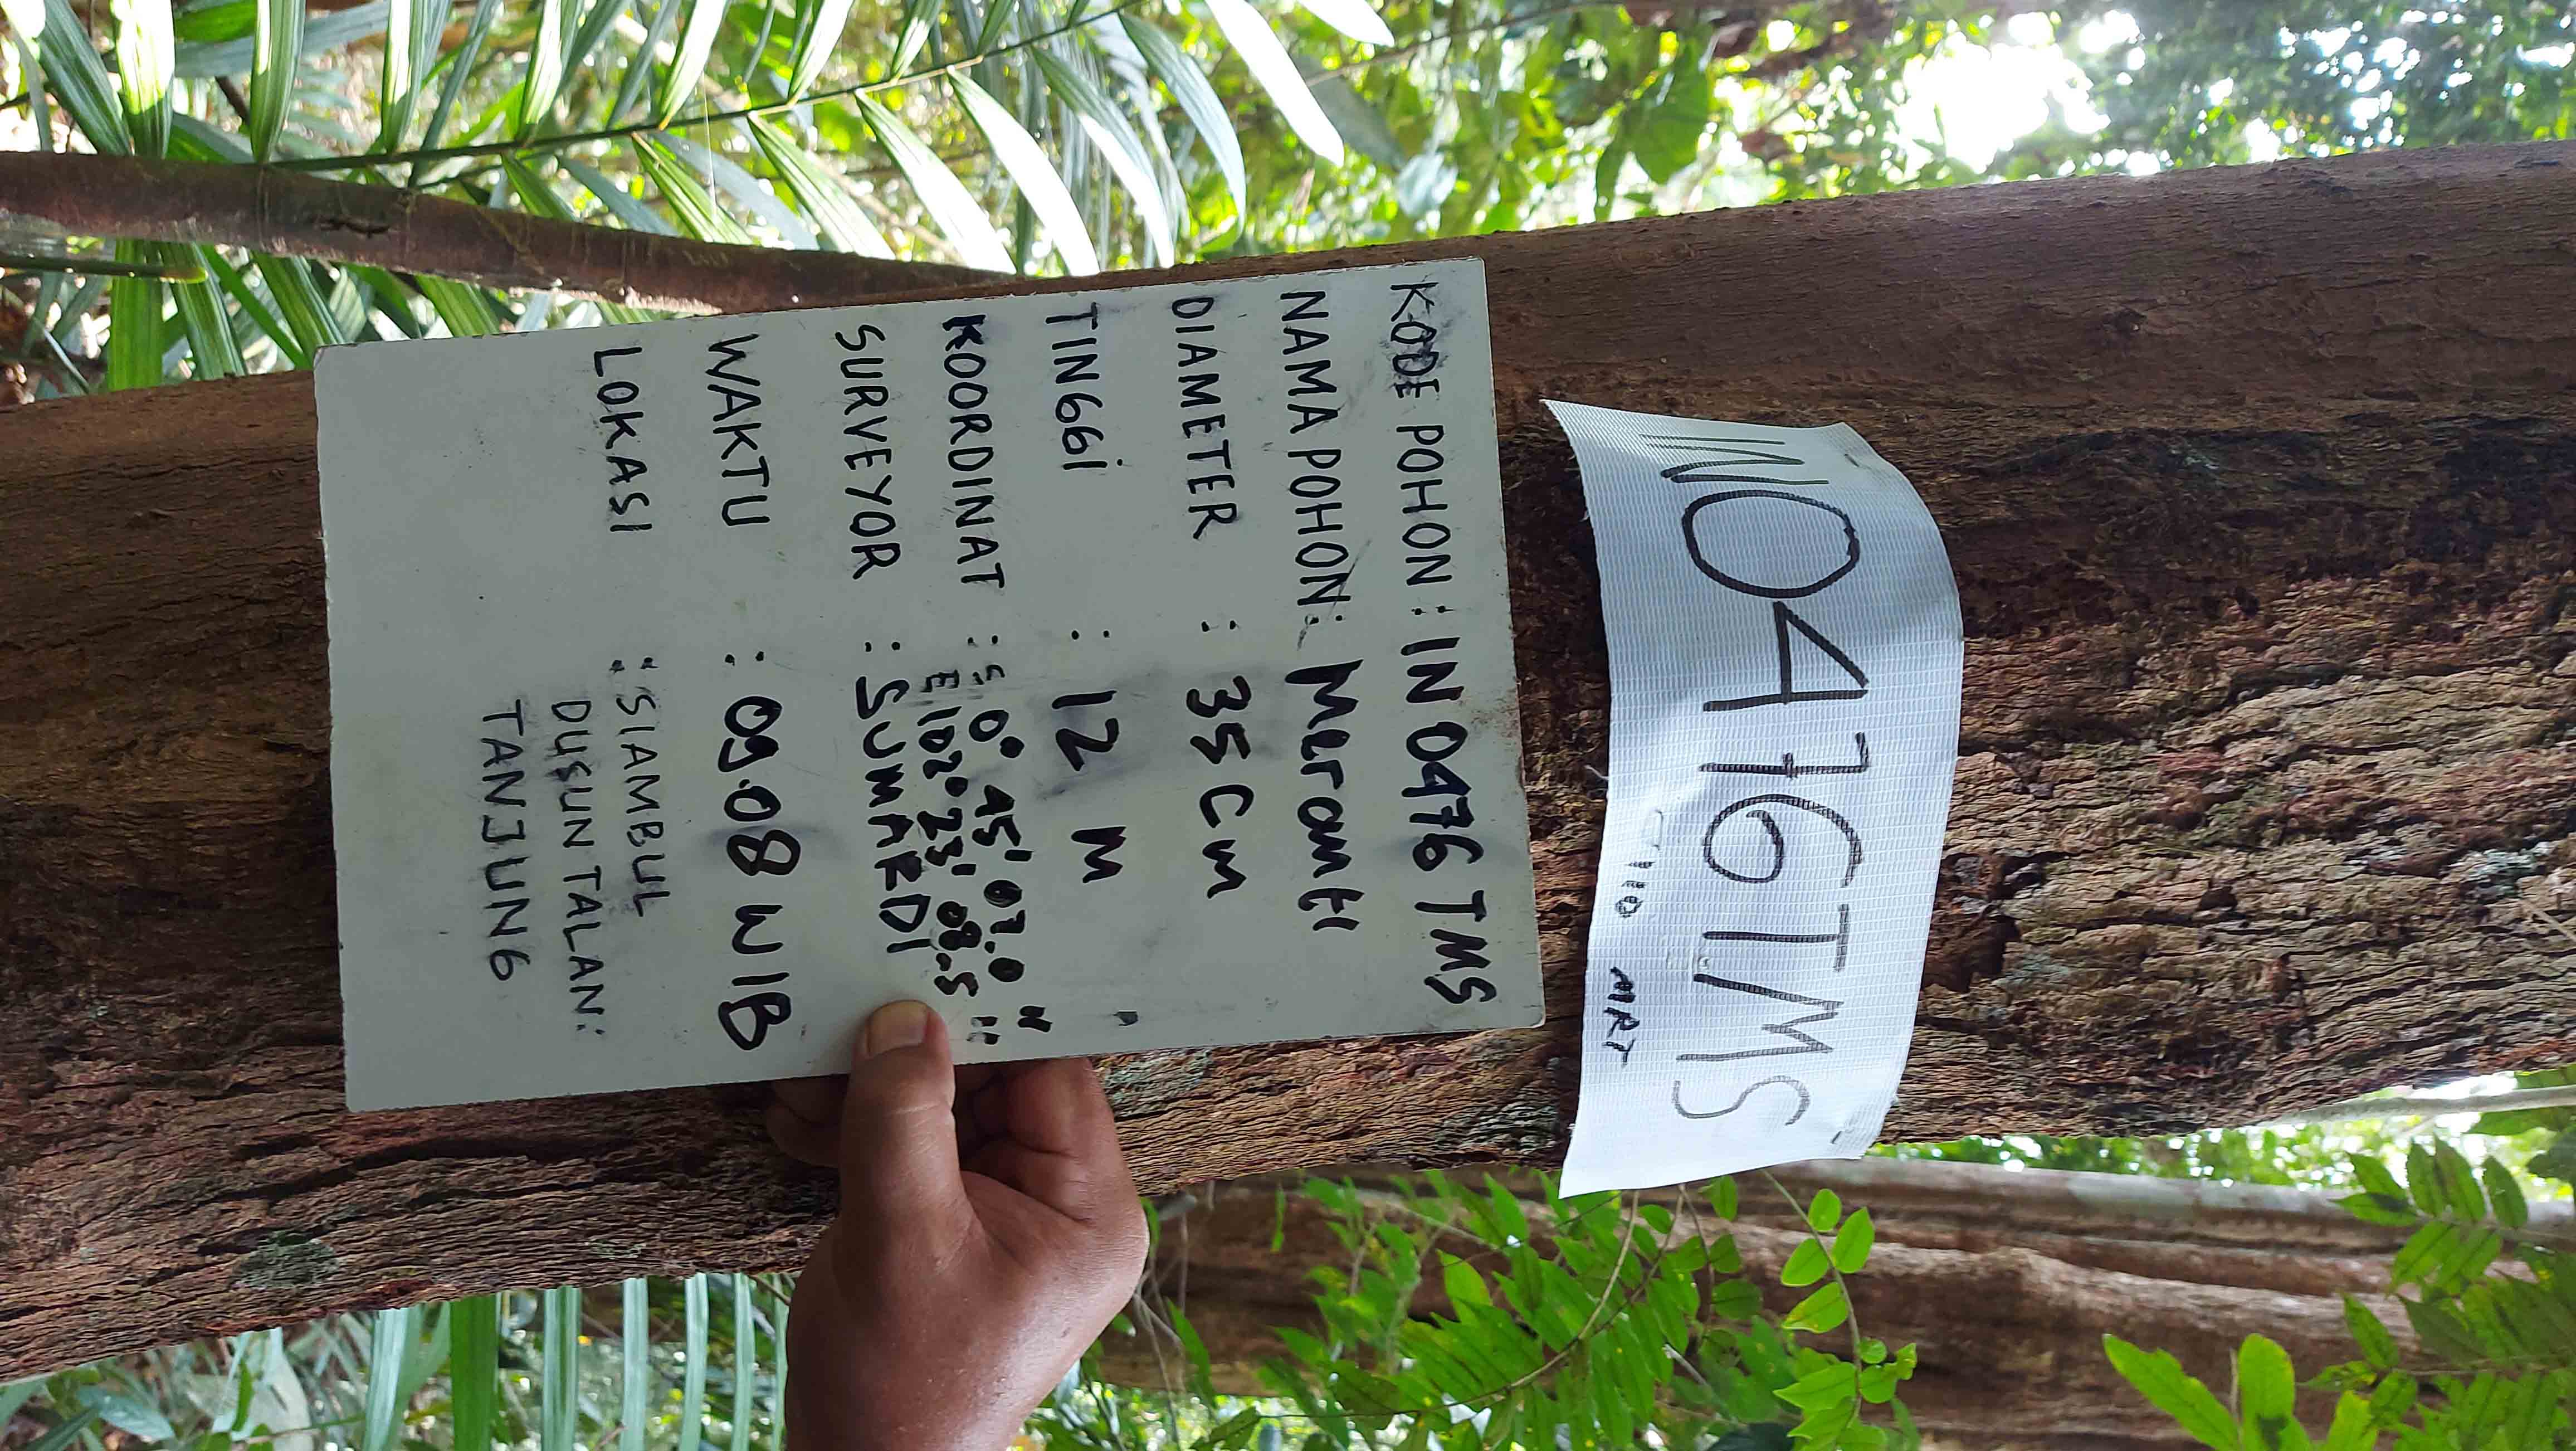 IN0476TMS
110 MRT
KODE POHON : IN 0476 TMS
NAMA POHON : Meranti
DIAMETER : 35 Cm
TINGGi : 12 M
KOORDINAT : S. 0° 45' 07.0 "
E. 102° 23' 08.5 "
SURVEYOR : SUMARDI
WAKTU : 09.08 WIB
LOKASI : SIAMBUL
DUSUN TALAN:
TANJUNG